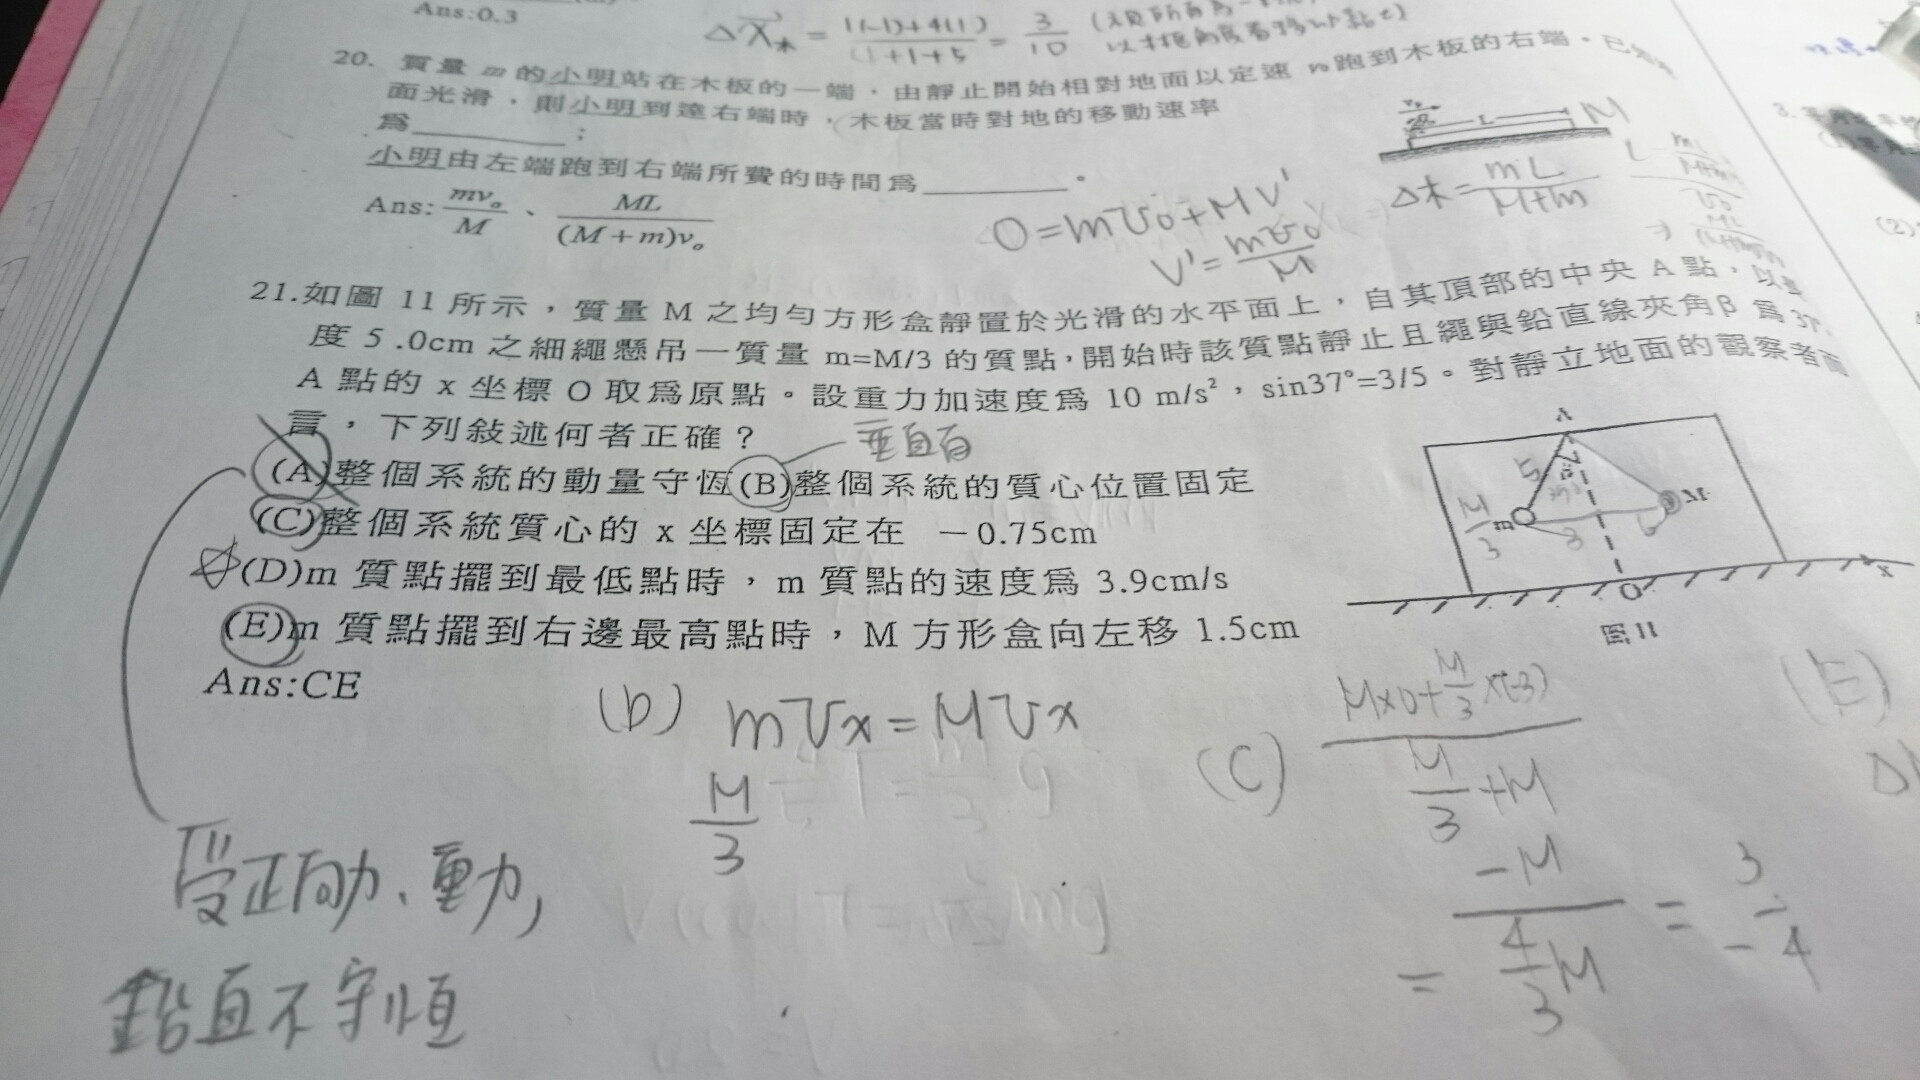 Ans:0.3
20. 質量 m 的小明站在木板的一端，由靜止開始相對地面以定速 v₀跑到木板的右端。已知
面光滑，則小明到達右端時，木板當時對地的移動速率
為________；
小明由左端跑到右端所費的時間為________。
Ans: mv₀/M 、 ML/(M+m)v₀
L M
Δ木=mL/M+m
0=mv₀+MV'
V'=mv₀/M
21.如圖 11 所示，質量 M 之均勻方形盒靜置於光滑的水平面上，自其頂部的中央 A 點，以
度 5.0cm 之細繩懸吊一質量 m=M/3 的質點，開始時該質點靜止且繩與鉛直線夾角β 為 37°。
A 點的 x 坐標 O 取為原點。設重力加速度為 10 m/s²，sin37°=3/5。對靜立地面的觀察者而
言，下列敍述何者正確？
垂直有
(A)整個系統的動量守恆(B)整個系統的質心位置固定
(C)整個系統質心的 x 坐標固定在 －0.75cm
(D)m 質點擺到最低點時，m 質點的速度為 3.9cm/s
(E)m 質點擺到右邊最高點時，M 方形盒向左移 1.5cm
Ans:CE
A
5 β
M/3 m 3 M
O x
圖11
(D) mVx=MVx
M/3
(C) M×0+M/3×(-3) / M/3+M
= -M / 4/3M = 3/-4
(E)
受正向力、重力,
鉛直不守恆